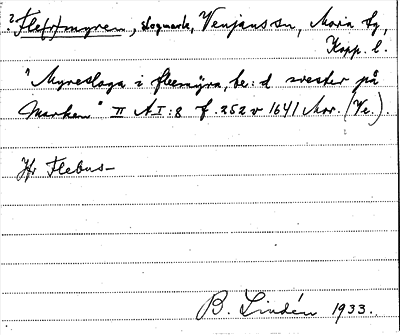 ? Fle(r)myren, skogmark, Venjans sn, Mora tg,
Kopp. l.
"Myresloga i fleemÿra, be: d svester på
Marken" II A I:8 f. 252 v 1641 Mor. (Ve.).
Jfr Flebus-
B. Lindén 1933.